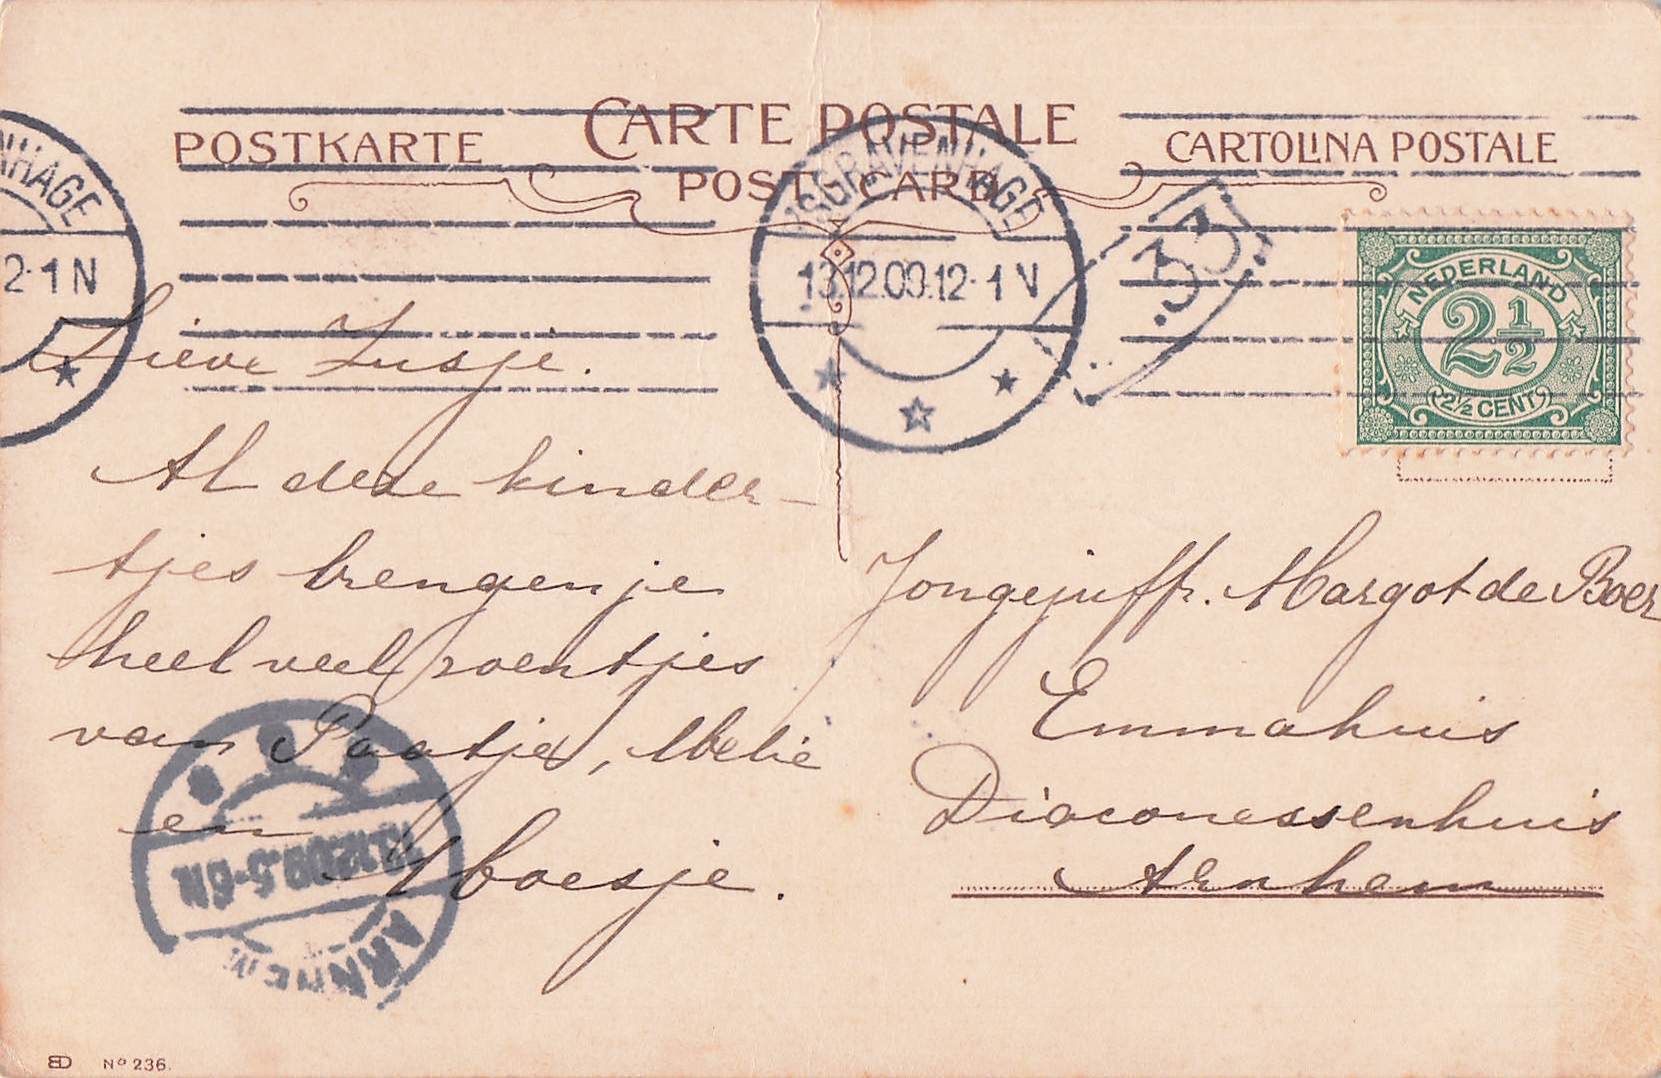 POSTKARTE
CARTE POSTALE
CARTOLINA POSTALE
POST CARD
NHAGE
2·1N
'SGRAVENHAGE
13.12.09.12·1 N
33
NEDERLAND
2 1/2
2½ CENT
Lieve Zusje.
Al deze kinder-
tjes brengen je
heel veel zoentjes
van Paatje,
en Moesje.
Jongejuffr. Margot de Boer
Emmahuis
Diaconessenhuis
Arnhem
12.09.5-6N
ARNHEM
BD Nº 236.